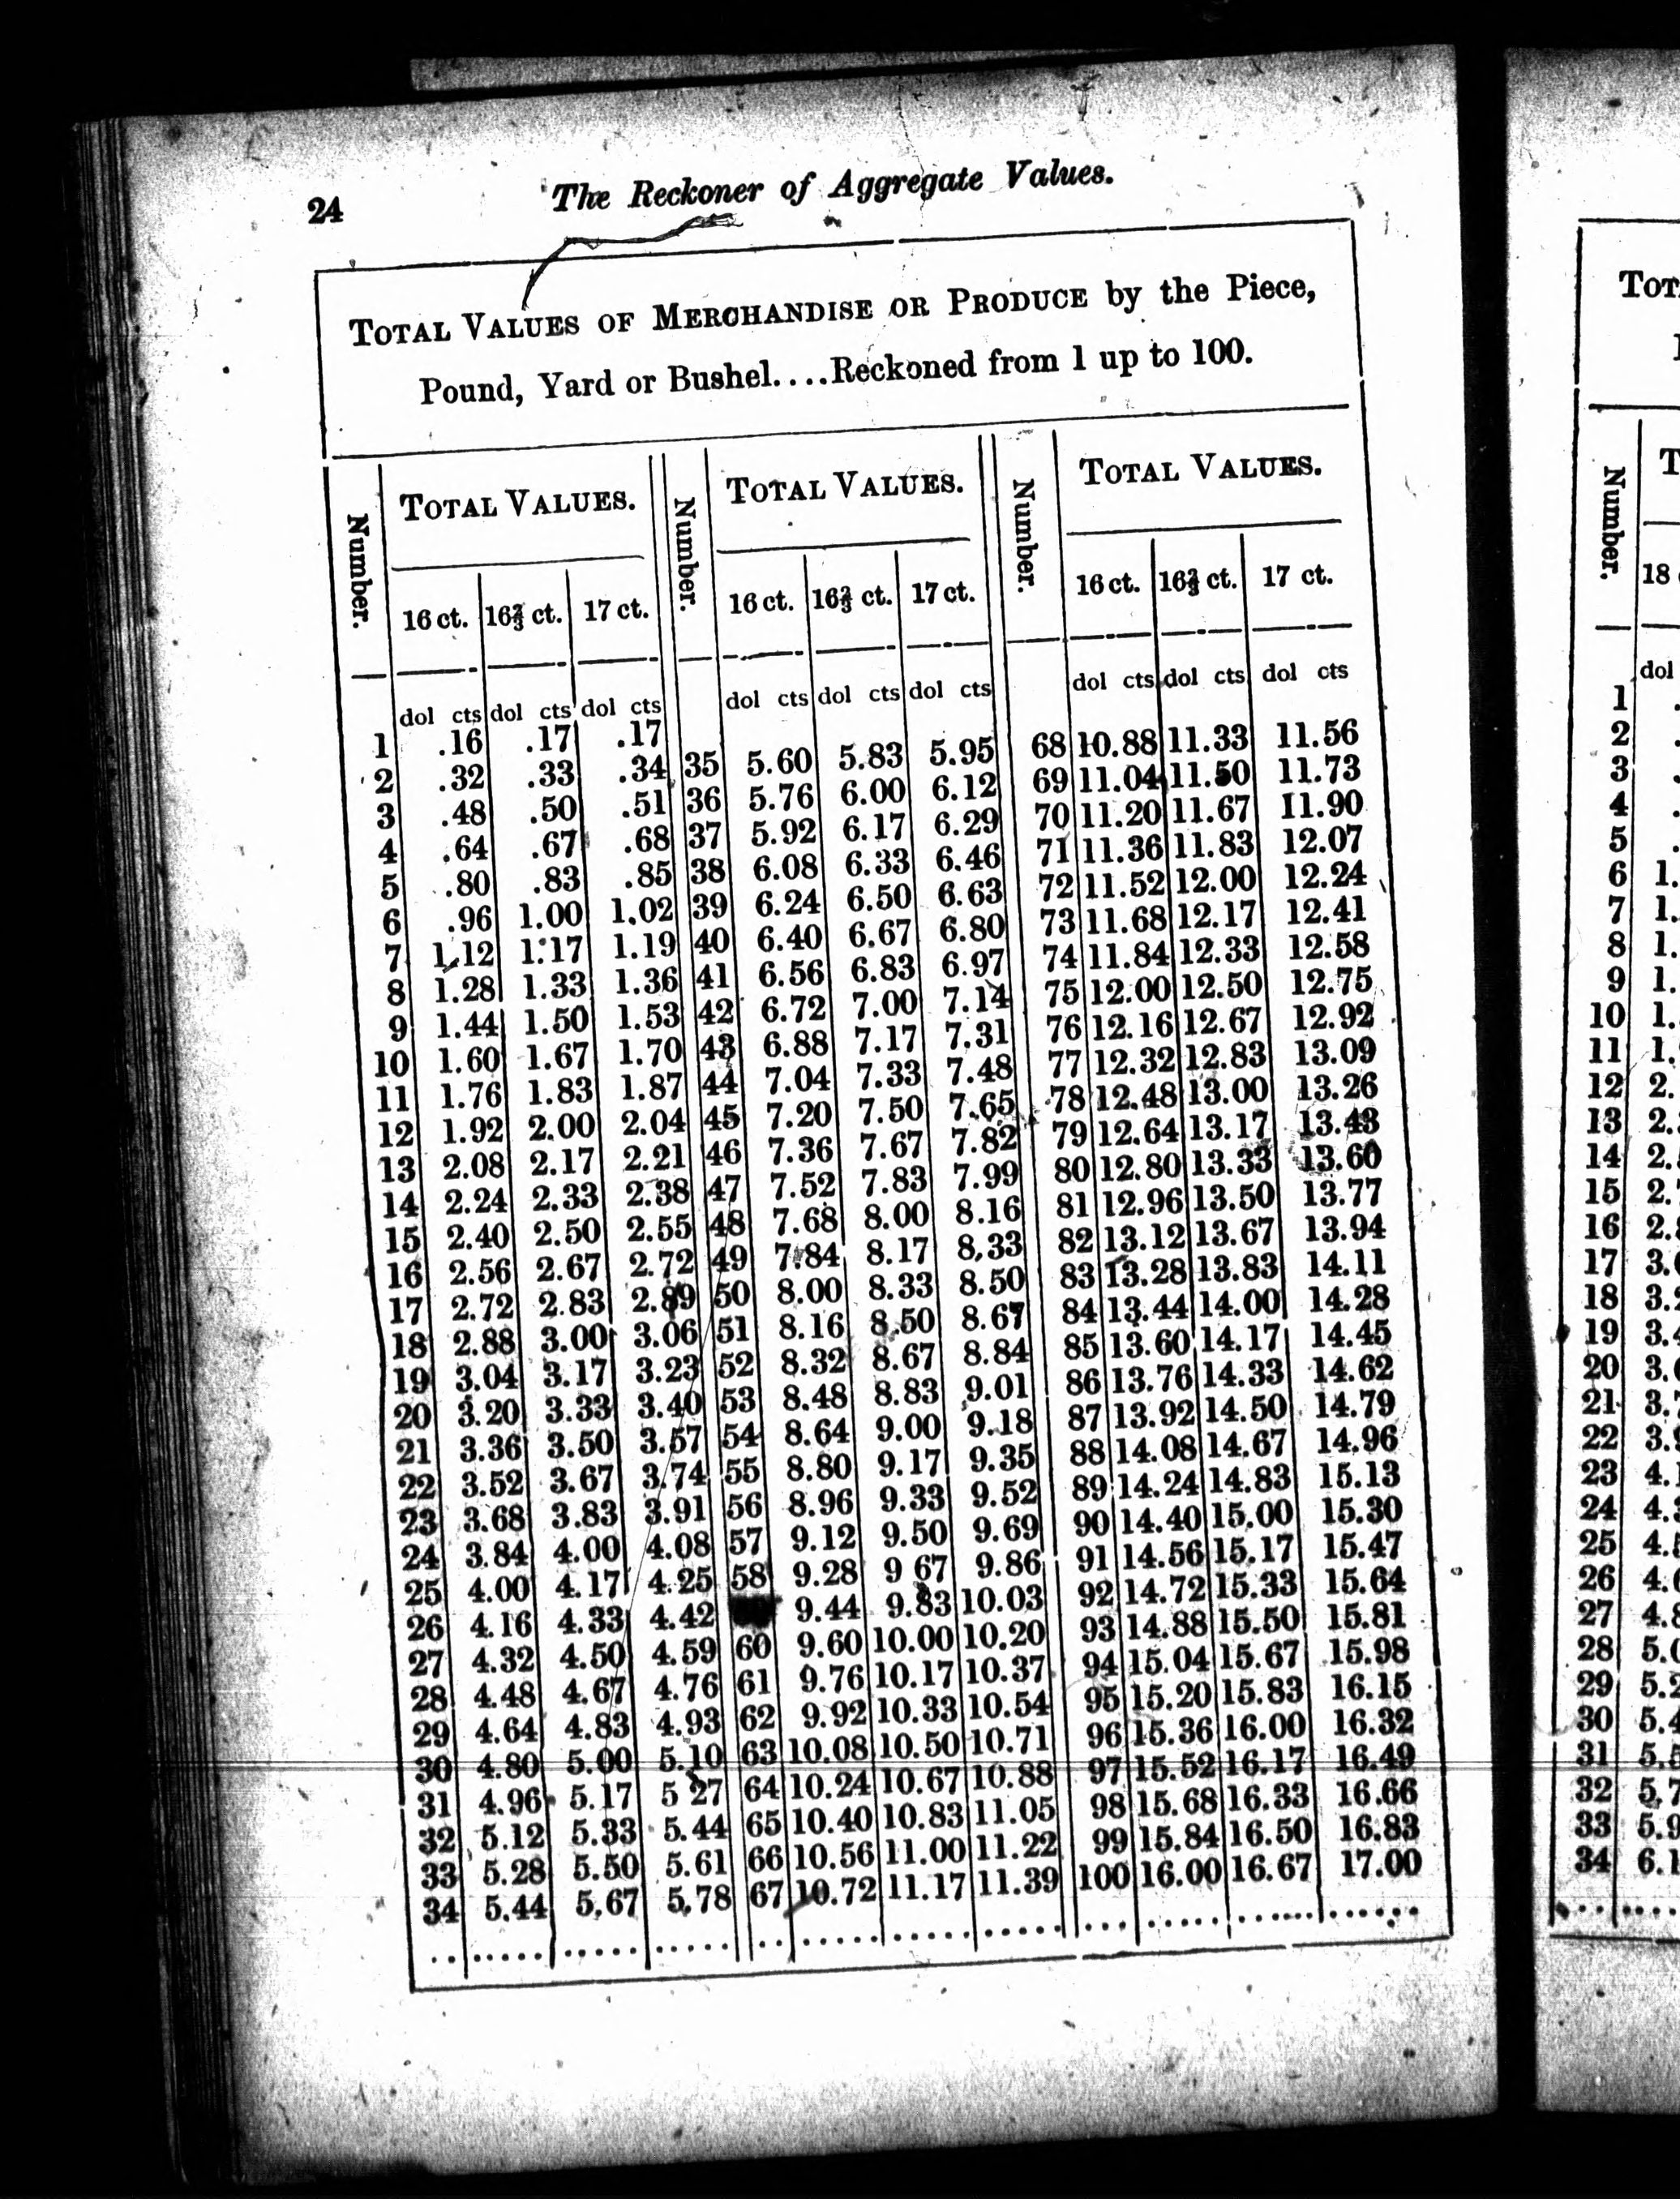 24 The Reckoner of Aggregate Values.
TOTAL VALUES OF MERCHANDISE OR PRODUCE by the Piece,
Pound, Yard or Bushel....Reckoned from 1 up to 100.
Number. TOTAL VALUES. Number. TOTAL VALUES. Number. TOTAL VALUES.
16 ct. 16⅔ ct. 17 ct. 16 ct. 16⅔ ct. 17 ct. 16 ct. 16⅔ ct. 17 ct.
dol cts dol cts dol cts dol cts dol cts dol cts dol cts dol cts dol cts
1 .16 .17 .17 35 5.60 5.83 5.95 68 10.88 11.33 11.56
2 .32 .33 .34 36 5.76 6.00 6.12 69 11.04 11.50 11.73
3 .48 .50 .51 37 5.92 6.17 6.29 70 11.20 11.67 11.90
4 .64 .67 .68 38 6.08 6.33 6.46 71 11.36 11.83 12.07
5 .80 .83 .85 39 6.24 6.50 6.63 72 11.52 12.00 12.24
6 .96 1.00 1,02 40 6.40 6.67 6.80 73 11.68 12.17 12.41
7 1.12 1.17 1.19 41 6.56 6.83 6.97 74 11.84 12.33 12.58
8 1.28 1.33 1.36 42 6.72 7.00 7.14 75 12.00 12.50 12.75
9 1.44 1.50 1.53 43 6.88 7.17 7.31 76 12.16 12.67 12.92
10 1.60 1.67 1.70 44 7.04 7.33 7.48 77 12.32 12.83 13.09
11 1.76 1.83 1.87 45 7.20 7.50 7.65 78 12.48 13.00 13.26
12 1.92 2.00 2.04 46 7.36 7.67 7.82 79 12.64 13.17 13.43
13 2.08 2.17 2.21 47 7.52 7.83 7.99 80 12.80 13.33 13.60
14 2.24 2.33 2.38 48 7.68 8.00 8.16 81 12.96 13.50 13.77
15 2.40 2.50 2.55 49 7.84 8.17 8,33 82 13.12 13.67 13.94
16 2.56 2.67 2.72 50 8.00 8.33 8.50 83 13.28 13.83 14.11
17 2.72 2.83 2.89 51 8.16 8.50 8.67 84 13.44 14.00 14.28
18 2.88 3.00 3.06 52 8.32 8.67 8.84 85 13.60 14.17 14.45
19 3.04 3.17 3.23 53 8.48 8.83 9.01 86 13.76 14.33 14.62
20 3.20 3.33 3.40 54 8.64 9.00 9.18 87 13.92 14.50 14.79
21 3.36 3.50 3.57 55 8.80 9.17 9.35 88 14.08 14.67 14.96
22 3.52 3.67 3.74 56 8.96 9.33 9.52 89 14.24 14.83 15.13
23 3.68 3.83 3.91 57 9.12 9.50 9.69 90 14.40 15.00 15.30
24 3.84 4.00 4.08 58 9.28 9 67 9.86 91 14.56 15.17 15.47
25 4.00 4.17 4.25 9.44 9.83 10.03 92 14.72 15.33 15.64
26 4.16 4.33 4.42 60 9.60 10.00 10.20 93 14.88 15.50 15.81
27 4.32 4.50 4.59 61 9.76 10.17 10.37 94 15.04 15.67 15.98
28 4.48 4.67 4.76 62 9.92 10.33 10.54 95 15.20 15.83 16.15
29 4.64 4.83 4.93 63 10.08 10.50 10.71 96 15.36 16.00 16.32
30 4.80 5.00 5.10 64 10.24 10.67 10.88 97 15.52 16.17 16.49
31 4.96 5.17 5 27 65 10.40 10.83 11.05 98 15.68 16.33 16.66
32 5.12 5.33 5.44 66 10.56 11.00 11.22 99 15.84 16.50 16.83
33 5.28 5.50 5.61 67 10.72 11.17 11.39 100 16.00 16.67 17.00
34 5.44 5,67 5,78
Number.
18
dol
1
2
3
4
5
6 1.
7 1.
8 1.
9 1.
10 1.
11 1.
12 2.
13 2.
14 2.
15 2.
16 2.
17 3.
18 3.
19 3.
20 3.
21 3.
22 3.
23 4.
24 4.
25 4.
26 4.
27 4.
28 5.
29 5.
30 5.
31 5.
32 5.
33 5.
34 6.